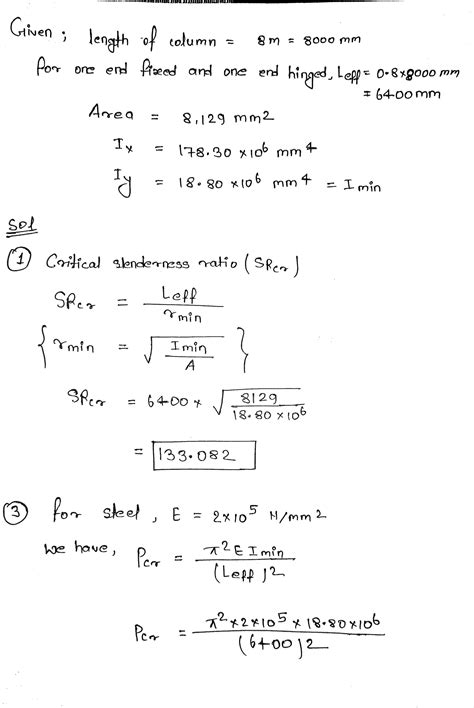 Given ; length of column = 8m = 8000 mm
for one end fixed and one end hinged, Leff = 0.8×8000 mm
= 6400 mm
Area = 8,129 mm2
Ix = 178.30 ×10⁶ mm4
Iy = 18.80 ×10⁶ mm4 = I min
Sol
① Critical slenderness ratio (SRcr)
SRcr = Leff / rmin
{ rmin = √(Imin / A) }
SRcr = 6400 × √(8129 / 18.80 ×10⁶)
= 133.082
③ for steel, E = 2×10⁵ N/mm2
we have, Pcr = π²E Imin / (Leff)2
Pcr = π²×2×10⁵ × 18.80×10⁶ / (6400)2